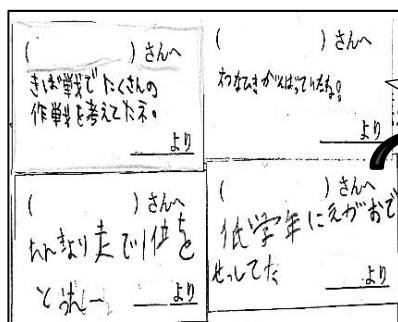 (　　　　)さんへ
きば戦でたくさんの
作戦を考えてたネ。
より
(　　　　)さんへ
つなひきがんばっていたね!
(　　　　)さんへ
たんきょり走で1位を
とうれしー
より
(　　　　)さんへ
低学年にえがおで
せっしてた
より